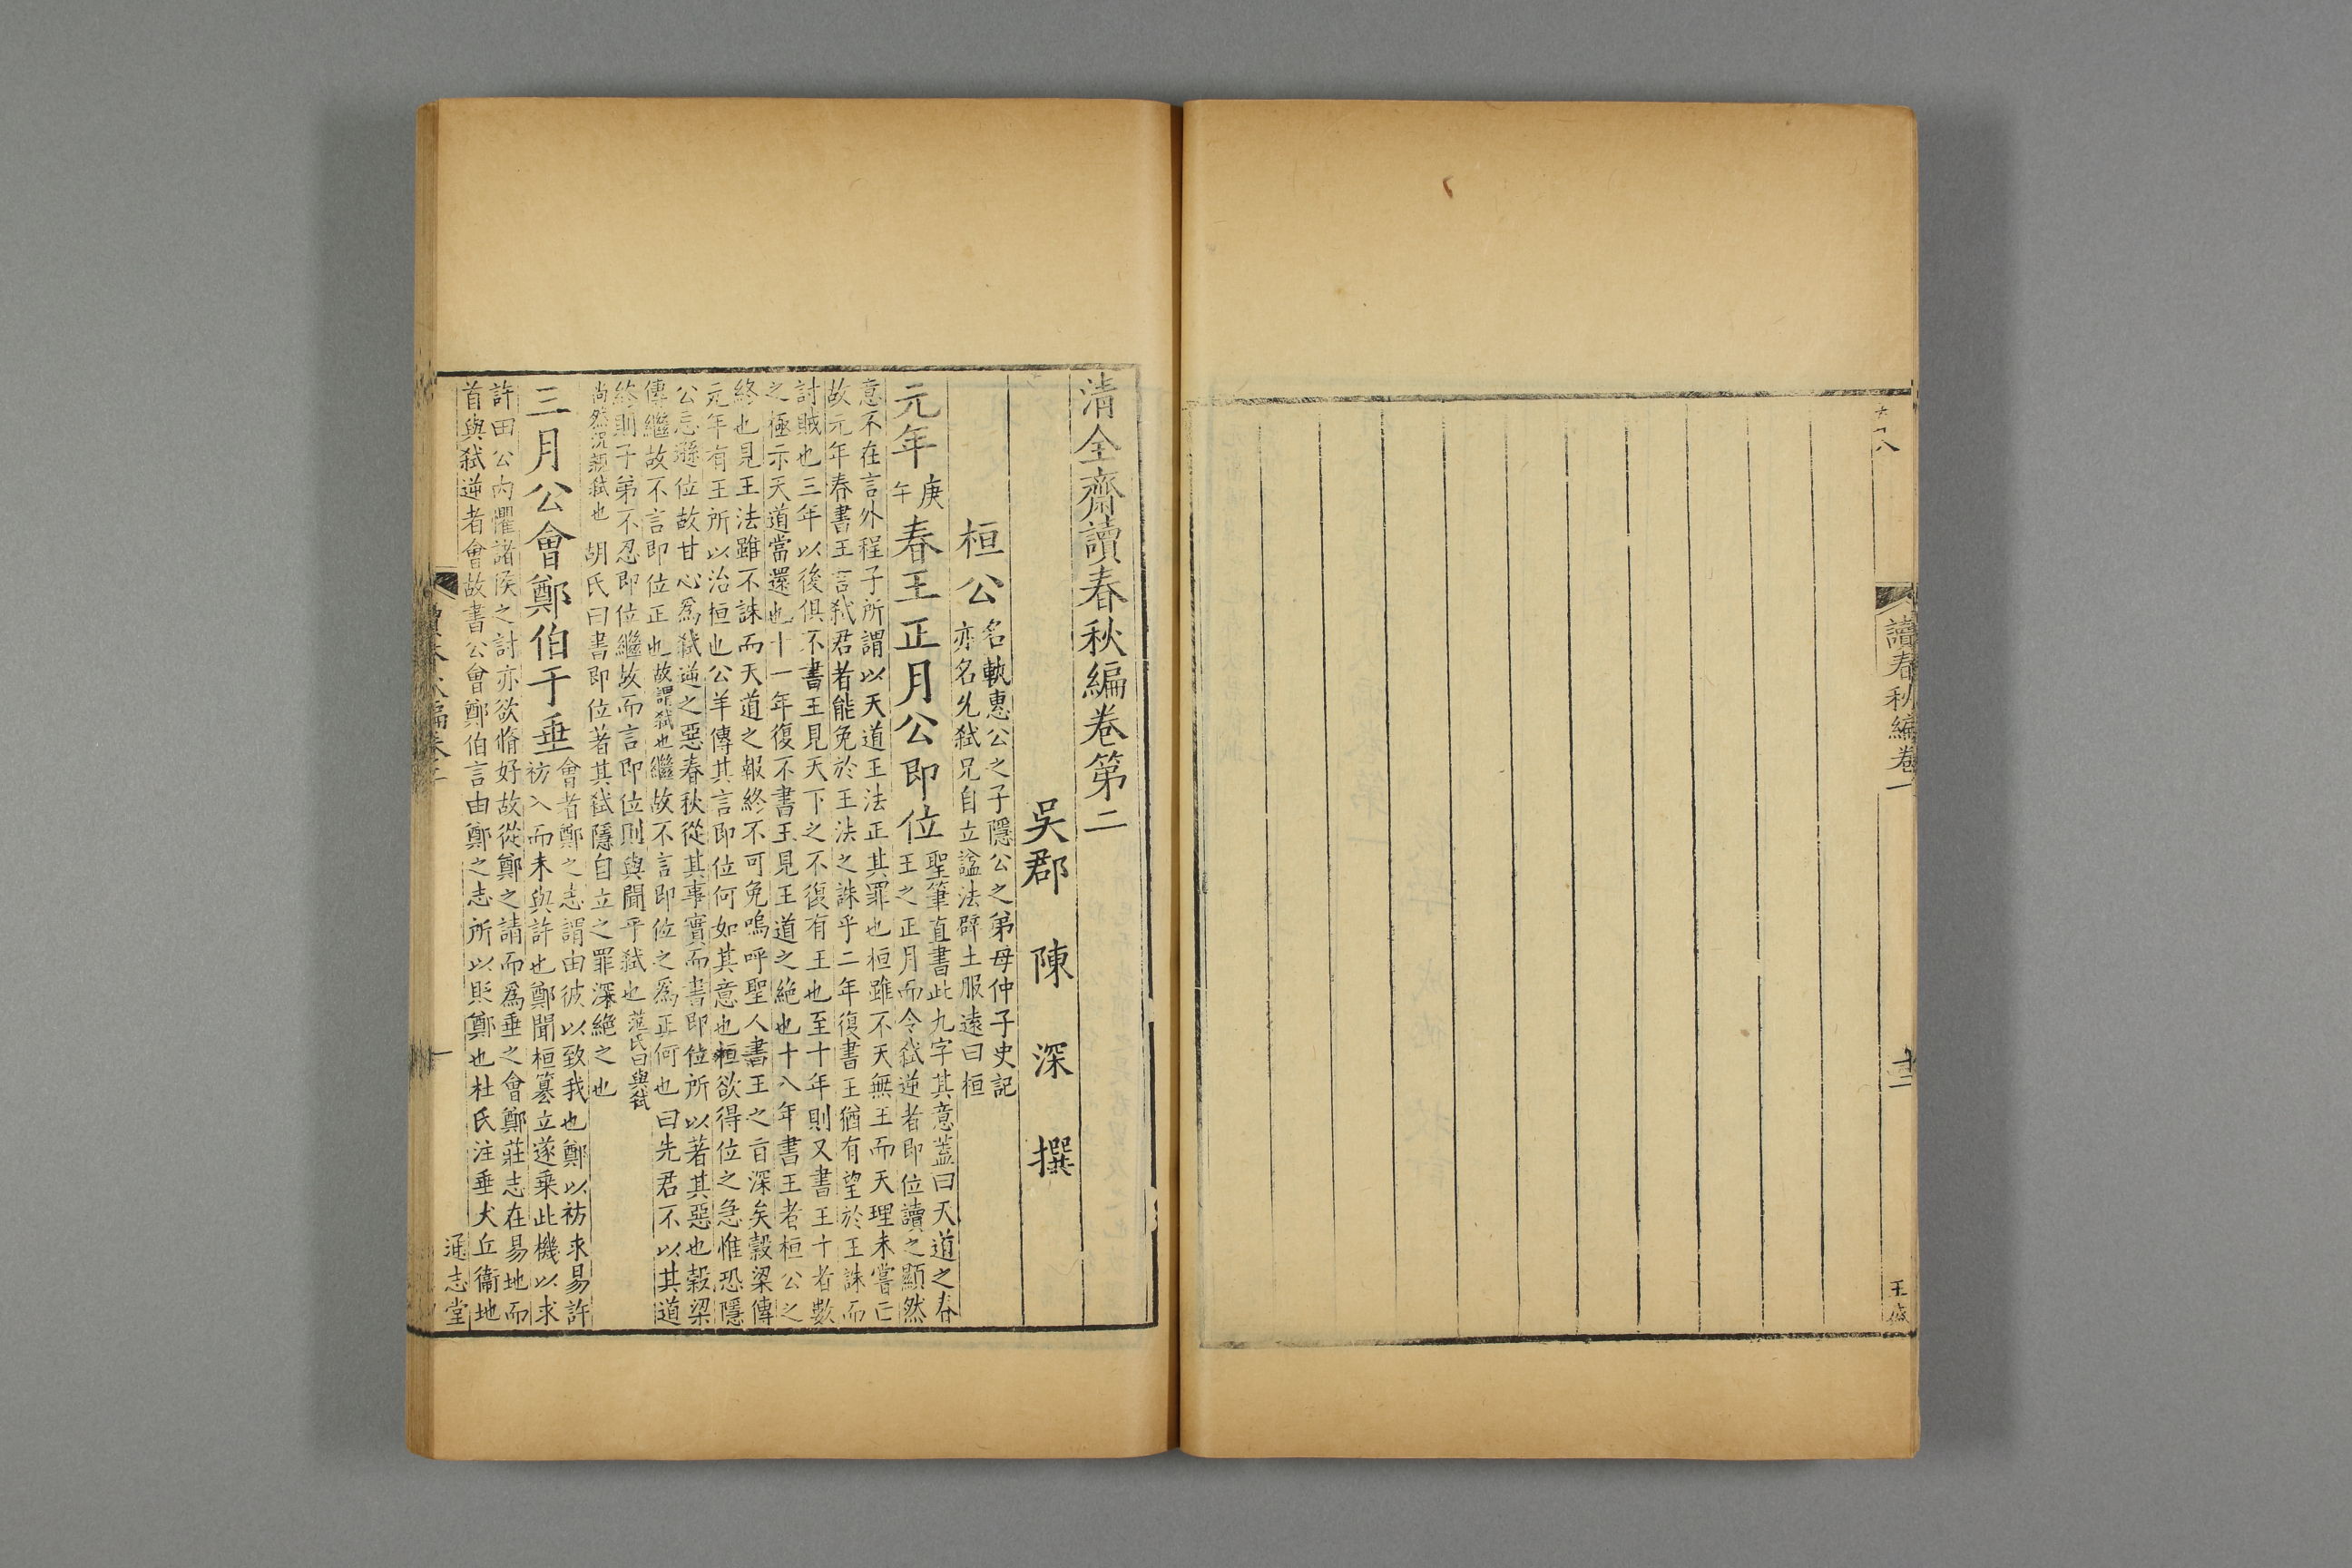 六十八
讀春秋編卷一
十二
王盛
清全齋讀春秋編卷第二
吳郡 陳 深 撰
桓公
名軌惠公之子隱公之弟母仲子史記
亦名允弑兄自立諡法辟土服遠曰桓
元年
庚
午
春王正月公即位
聖筆直書此九字其意蓋曰天道之春
王之正月而令弑逆者即位讀之顯然
意不在言外程子所謂以天道王法正其罪也桓雖不天無王而天理未嘗亡
故元年春書王言弑君者能免於王法之誅乎二年復書王猶有望於王誅而
討賊也三年以後俱不書王見天下之不復有王也至十年則又書王十者數
之極示天道當還也十一年復不書王見王道之絶也十八年書王者桓公之
終也見王法雖不誅而天道之報終不可免嗚呼聖人書王之旨深矣穀梁傳
元年有王所以治桓也公羊傳其言即位何如其意也桓欲得位之急惟恐隱
公忘遜位故甘心爲弑逆之惡春秋從其事實而書即位所以著其惡也穀梁
傳繼故不言即位正也故謂弑也繼故不言即位之爲正何也曰先君不以其道
終則子弟不忍即位繼故而言即位則與聞乎弑也范氏曰與弑
尚然況親弑也 胡氏曰書即位著其弑隱自立之罪深絶之也
三月公會鄭伯于垂
會者鄭之志謂由彼以致我也鄭以祊求易許
祊入而未與許也鄭聞桓簒立遂乗此機以求
許田公内懼諸侯之討亦欲脩好故從鄭之請而爲垂之會鄭莊志在易地而
首與弑逆者會故書公會鄭伯言由鄭之志所以貶鄭也杜氏注垂犬丘衞地
一
通志堂